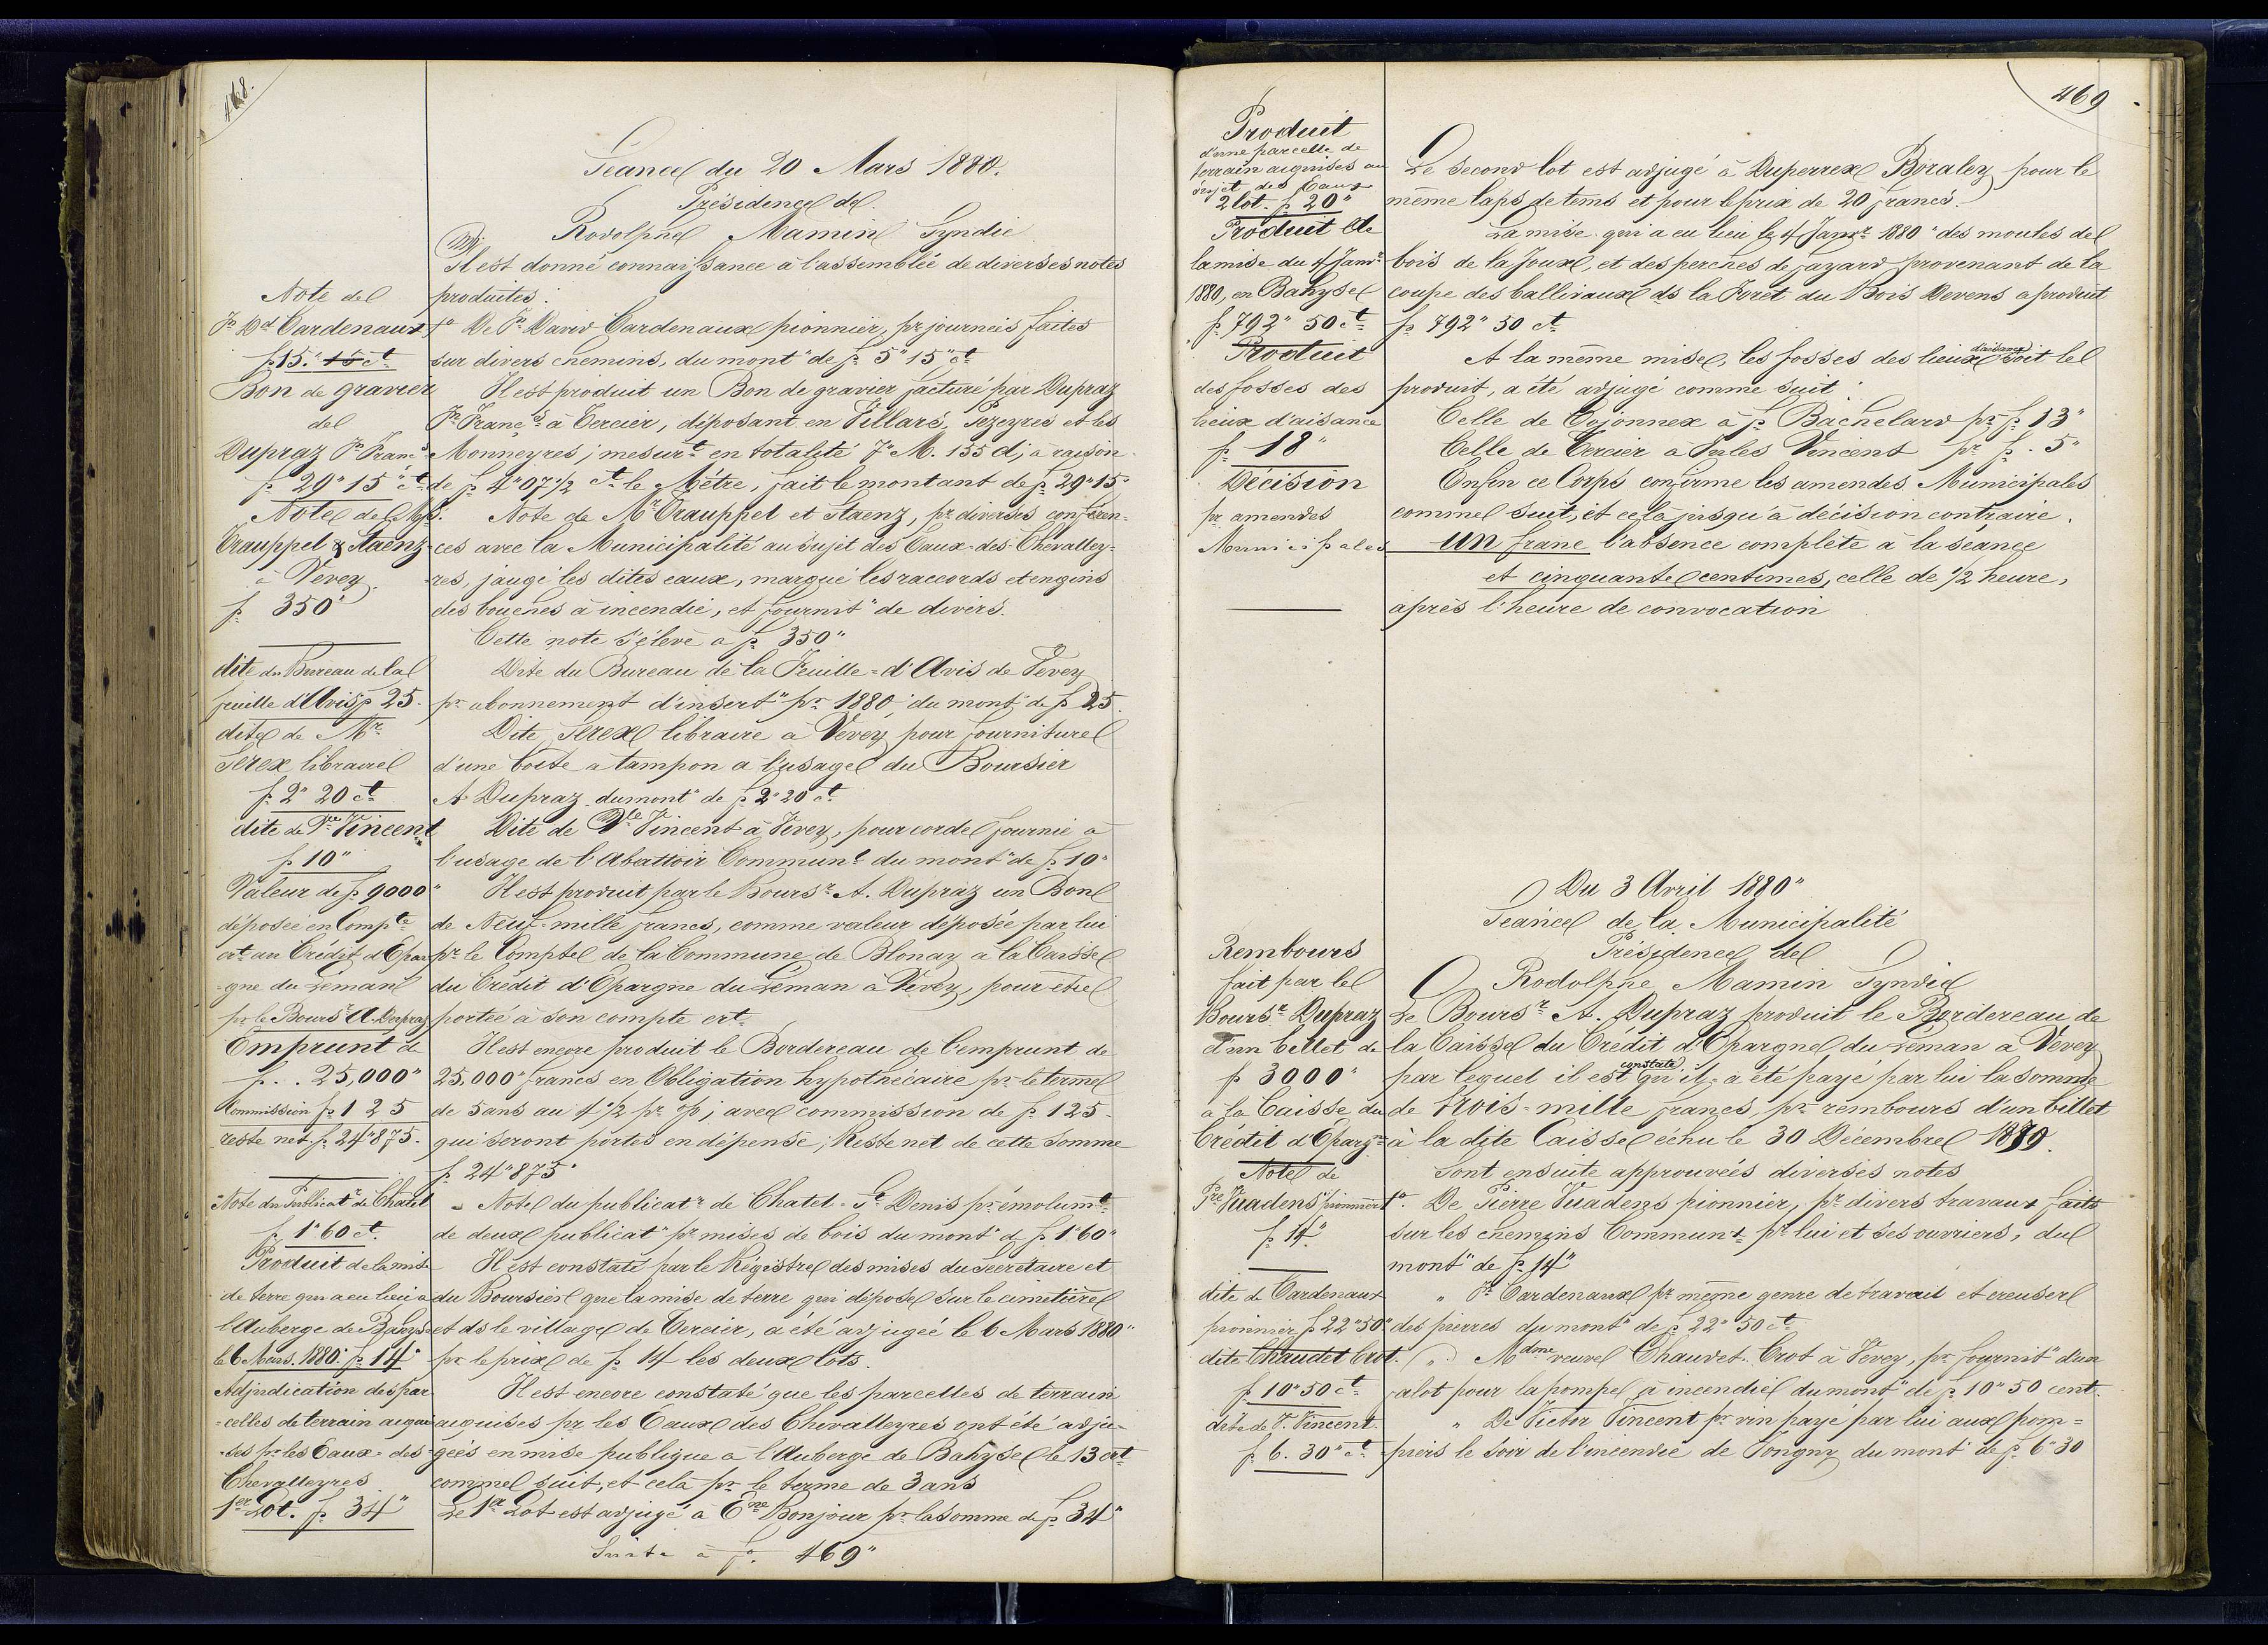 468.
Séance du 20 Mars 1880.
Présidence de
Rodolphe Mamin Syndic
Il est donné connaissance à l'assemblée de diverses notes
Note de
produites :
Jn Dd Cardenaux
1º De Jn David Cardenaux pionnier, pr journeés faites
f. 15." 15 ct
sur divers chemins, du mont" de fr 5" 15" ct
Bon de gravier
Il est produit un Bon de gravier facturé par Dupraz
de
Jn Franç.s à Cercier, déposant en Villars, Pezeyres et les
Dupraz Jn Franç.s
Monneyres; mesurt en totalité 7" M. 155 d; a raison
fr 29" 15" ct
de fr 4" 07 1/2 ct le Mètre, fait le montant de fr 29" 15"
Note de Mrs.
Note de Mr Trauppel et Staenz, pr diverses conféren-
Trauppel & Staenz
ces avec la Municipalité au sujet des Eaux-des-Chevalley-
à Vevey.
res, jaugé les dites eaux, marqué les raccords et engins
fr 350"
des bouches à incendie, et fournit" de divers.
Cette note s'élève à fr 350"
dite du Bureau de la
Dite du Bureau de la Feuille=d'Avis de Vevey
feuille d'Avis fr 25.
pr abonnement d'insert" pr 1880, du mont" de fr 25.
dite de Mr
Dite Serex libraire à Vevey pour fourniture
Serex libraire
d'une boîte a tampon a l'usage du Boursier
fr 2" 20 ct
A. Dupraz du mont" de fr 2" 20 ct
dite de Vve Vincent
Dite de Vve Vincent à Vevey, pour corde fournie à
fr 10"
l'usage de l'Abattoir Communl du mont" de fr 10"
Valeur de fr 9000"
Il est produit par le Boursr A. Dupraz un Bon
déposée en Compte
de Neuf-mille francs, comme valeur déposée par lui
crt au Crédit d'Epar
pr le Compte de la Commune de Blonay a la Caisse
=gne du Léman
du Crédit d'Epargne du Léman à Vevey, pour être
pr le Boursr A. Dupraz
portée à son compte crt.
Emprunt de
Il est encore produit le Bordereau de l'emprunt de
fr. . 25,000"
25,000" francs en Obligation hypothécaire pr le terme
Commission fr 125
de 5 ans au 4 1/2 pr %; avec commission de fr 125.
reste net fr 24"875.
qui seront portés en dépense; Reste net de cette somme
fr 24"875"
Note du Publicatr de Chatel
Note du publicatr de Chatel-St Denis pr émolumt
fr 1"60 ct.
de deux publicat" pr mises de bois du mont" d fr 1"60"
Produit de la mise
Il est constaté par le Régistre des mises du secrétaire et
de terre qui a eu lieu a
du Boursier que la mise de terre qui dépose sur le cimetière
l'Auberge de Bahyse
et ds le village de Cercier, a été adjugée le 6 Mars 1880"
le 6 Mars. 1880. fr 14"
pr le prix de fr 14 les deux lots.
Adjudication des par
Il est encore constaté que les parcelles de terrain
=celles de terrain aqui
aquises pr les Eaux des Chevalleyres ont été adju-
=ses pr les Eaux=des
geés en mise publique a l'Auberge de Bahyse le 13 crt
Chevalleyres
comme suit, et cela pr le terme de 3 ans
1er Lot. fr 34"
Le 1er Lot est adjugé a Ene Bonjour pr la somme de fr 34"
Suite à fº. 469"
469
Produit
d'une parcelle de
terrain aquises au
sujet des Eaux
2 lot. fr 20"
Le second lot est adjugé à Duperrex Boraley pour le
même laps de tems et pour le prix de 20 francs.
Produit de
La mise qui a eu lieu le 4 Janvr 1880" des moules de
la mise du 4 Janvr
bois de la Joux, et des perches de fayard provenant de la
1880, en Bahyse
coupe des ballivaux ds la Forêt du Bois Devens a produit
fr 792" 50 ct
fr 792" 50 ct
Produit
A la même mise, les fosses des lieux d'aisance soit le
des fosses des
produit, a été adjugé comme suit :
lieux d'aisance
Celle de Cojonnex à fs Bachelard pr fr 13"
fr 18"
Celle de Cercier à Jules Vincent pr fr. 5"
Décision
Enfin ce Corps confirme les amendes Municipales
pr amendes
comme suit, et cela jusqu'à décision contraire.
Municipales
un franc l'absence complète à la séance
et cinquante centimes, celle de 1/2 heure,
après l'heure de convocation
Du 3 Avril 1880"
Séance de la Municipalité
Présidence de
Rembours
fait par le
Rodolphe Mamin Syndic
Boursr Dupraz
Le Boursr A. Dupraz produit le Bordereau de
d'un billet de
la Caisse du Crédit d'Epargne du Léman a Vevey
fr 3000"
par lequel il est constaté qu'il a été payé par lui la somme
a la Caisse du
de trois=mille francs, pr rembours d'un billet
Crédit d'Epargne
à la dite Caisse échu le 30 Décembre 1879.
Note de
Sont ensuite approuvées diverses notes
Pre Vuadens pionnier
1º. De Pierre Vuadens pionnier, pr divers travaux faits
fr 14"
sur les chemins Communx pr lui et ses ouvriers, du
mont" de fr 14"
dite de Cardenaux
" Jn Cardenaux pr même genre de travail et creuser
pionnier fr 22"50"
des pierres du mont" de fr 22" 50 ct
dite Chaudet Crot.
" Mdme veuve Chaudet. Crot à Vevey, pr fournit" d'un
fr 10" 50 ct
falot pour la pompe à incendie du mont" de fr 10" 50 cent.
dite de Vr Vincent
" De Victor Vincent pr vin payé par lui aux pom=
fr 6. 30" ct
piers le soir de l'incendie de Jongny du mont" de fr 6"30